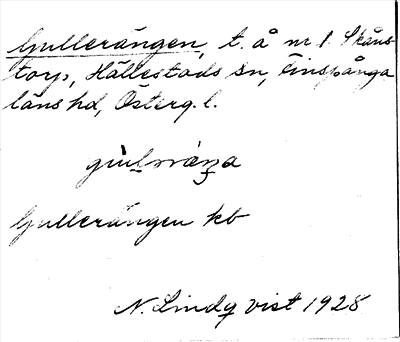 Gullerängen, t. å nr 1. Skåns-
torp, Hällestads sn, Finspånga
läns hd, Österg. l.
Gullerängen kb
N. Lindqvist 1928